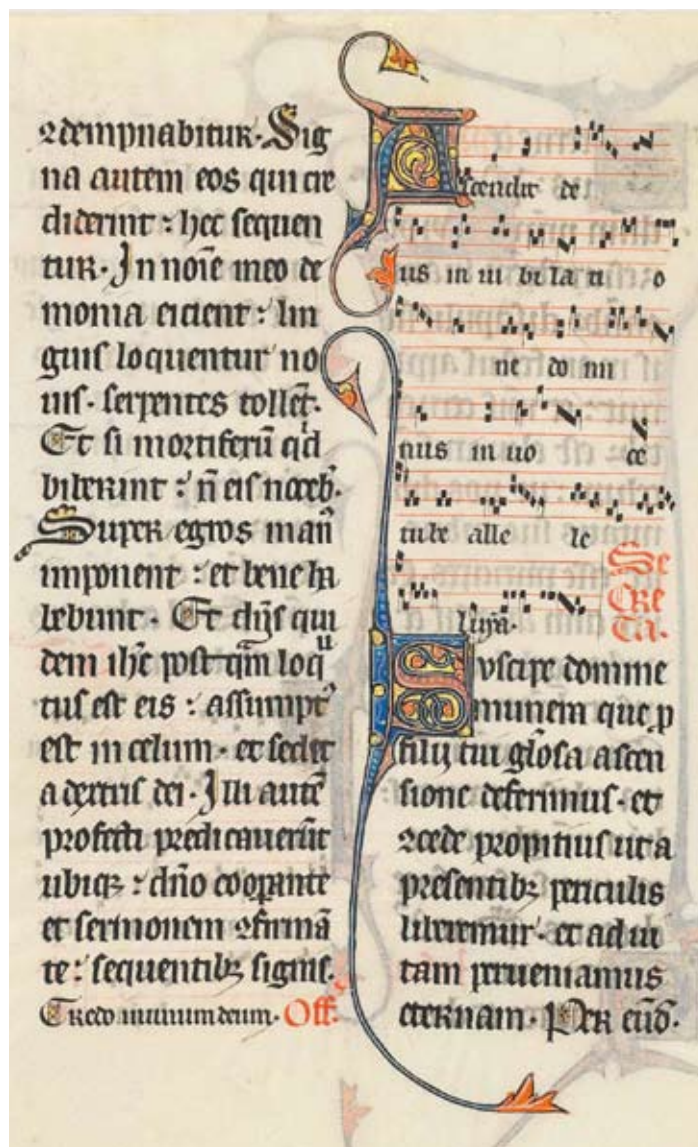 ꝯdempnabitur. Sig
na autem eos qui cre
diderint : hec sequen
tur. In noīe meo de
monia eicient : lin
guis loquentur no
uis. serpentes tollēt.
Et si mortiferū qͥd
biberint : n̄ eis noceb̾.
Super egros man̾
imponent : et bene ha
bebunt. Et dn̄s qui
dem ihc̄ post qm̄ loqᵘ
tus est eis : assumpt̾
est in celum. et sedet
a dextris dei. Illi autē
profecti predicauerūt
ubiqꝫ : dn̄o coopante
et sermonem ꝯfirmā
te : sequentibꝫ signis.
Credo in unum deum. Off.
Ascendit de
us in iubilati o
ne do mi
nus in uo ce
tube alle le
luya.
Se
cre
ta.
Suscipe domine
munera que ꝓ
filij tui glōsa ascen
sione deferimus. et
ꝯcede propitius ut a
presentibꝫ periculis
liberemur. et ad ui
tam perueniamus
eternam. Per eūd.